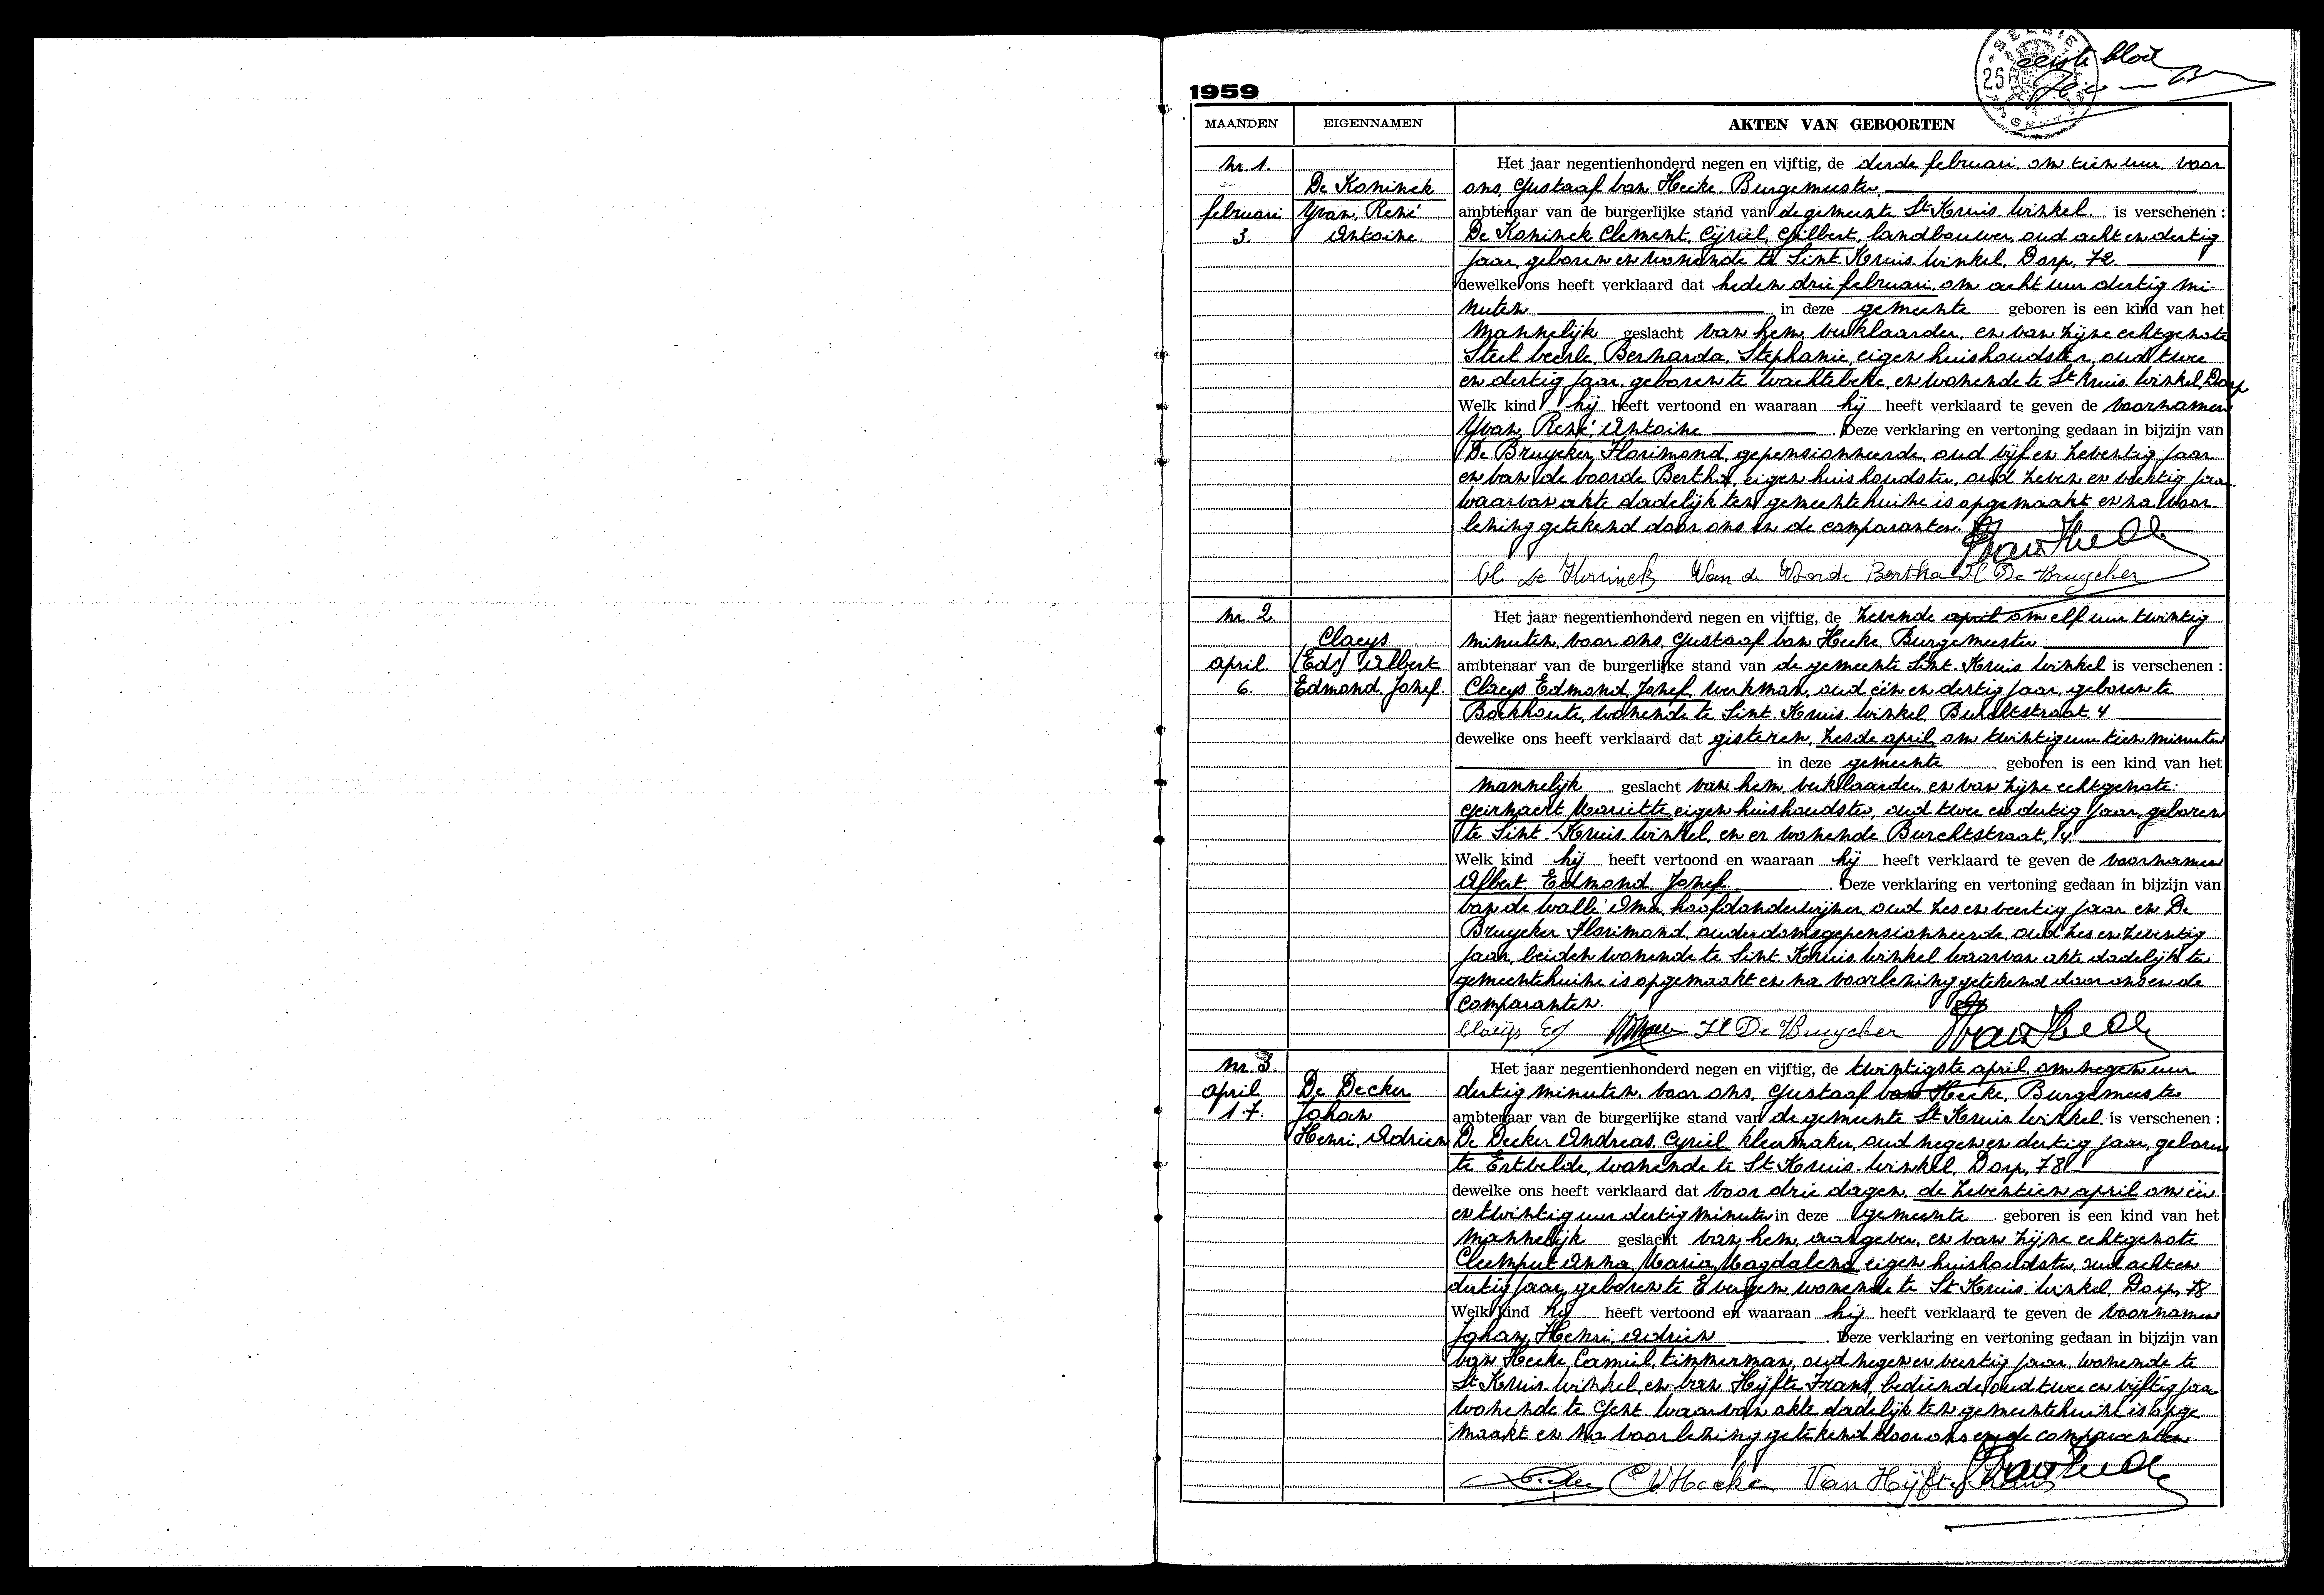 eerste blad
BELGIE
25
1959
MAANDEN EIGENNAMEN AKTEN VAN GEBOORTEN
nr. 1. Het jaar negentienhonderd negen en vijftig, de derde februari om tien uur voor
De Koninck ons, Gustaaf Van Hecke, Burgemeester
februari Yvan, René ambtenaar van de burgerlijke stand van de gemeente St Kruis Winkel. is verschenen :
3. Antoine De Koninck Clement, Cyriel, Gilbert, landbouwer, oud acht en dertig
jaar, geboren en wonende te Sint Kruis Winkel, Dorp, 72.
dewelke ons heeft verklaard dat heden drie februari, om acht uur dertig mi-
nuten in deze gemeente geboren is een kind van het
mannelijk geslacht van hem, verklaarder, en van zijne echtgenote
Bernarda, Stephanie, eigen huishoudster, oud twee
en dertig jaar, geboren te Wachtebeke, en wonende te St Kruis Winkel, Dorp
Welk kind hij heeft vertoond en waaraan hij heeft verklaard te geven de voornamen
Yvan, René, Antoine . Deze verklaring en vertoning gedaan in bijzijn van
De Bruycker, Florimond, gepensionneerde, oud vijf en zeventig jaar
en Van de Voorde Bertha, eigen huishoudster, oud zeven en veertig jaar
waarvan akte dadelijk ten gemeentehuize is opgemaakt en na voor-
lezing getekend door ons en de comparanten.
Cl De Koninck Van de Voorde Bertha Fl De Bruycker
nr. 2. Het jaar negentienhonderd negen en vijftig, de zevende april om elf uur twintig
Claeys minuten, voor ons, Gustaaf Van Hecke, Burgemeester
april (Eds) Albert ambtenaar van de burgerlijke stand van de gemeente Sint Kruis Winkel is verschenen :
6. Edmond, Jozef. Claeys Edmond, Jozef, werkman, oud één en dertig jaar, geboren te
Boekhoute, wonende te Sint Kruis Winkel, Burchtstraat, 4
dewelke ons heeft verklaard dat gisteren, zesde april, om twintig uur tien minuten
in deze gemeente geboren is een kind van het
mannelijk geslacht van hem, verklaarder, en van zijne echtgenote.
Geirnaert Mariette, eigen huishoudster, oud twee en dertig jaar, geboren
te Sint Kruis Winkel, en er wonende Burchtstraat, 4.
Welk kind hij heeft vertoond en waaraan hij heeft verklaard te geven de voornamen
Albert, Edmond, Jozef . Deze verklaring en vertoning gedaan in bijzijn van
Van de Walle Oma, hoofdonderwijzer, oud zes en veertig jaar en De
Bruycker Florimond, ouderdomsgepensionneerde, oud zes en zeventig
jaar, beiden wonende te Sint Kruis Winkel waarvan akte dadelijk ten
gemeentehuize is opgemaakt en na voorlezing getekend door ons en de
comparanten.
Claeys Ed Fl De Bruycker
nr 3. Het jaar negentienhonderd negen en vijftig, de twintigste april, om negen uur
april De Decker dertig minuten, voor ons, Gustaaf Van Hecke, Burgemeester
17. Johan ambtenaar van de burgerlijke stand van de gemeente St Kruis Winkel is verschenen :
Henri, Adrien De Decker Andreas, Cyriel, kleermaker, oud negen en dertig jaar, geboren
te Ertvelde, wonende te St Kruis Winkel, Dorp, 78
dewelke ons heeft verklaard dat voor drie dagen, de zeventien april om één
en twintig uur dertig minuten in deze gemeente geboren is een kind van het
mannelijk geslacht van hem, aangever, en van zijne echtgenote
Cleemput Anna, Maria, Magdalena, eigen huishoudster, oud acht en
dertig jaar, geboren te Evergem, wonende te St Kruis Winkel, Dorp, 78
Welk kind hij heeft vertoond en waaraan hij heeft verklaard te geven de voornamen
Johan, Henri, Adrien . Deze verklaring en vertoning gedaan in bijzijn van
Van Hecke, Camiel, timmerman, oud negen en veertig jaar, wonende te
St Kruis Winkel, en Van Hijfte Frans, bediende, oud twee en vijftig jaar
wonende te Gent waarvan akte dadelijk ten gemeentehuize is opge
maakt en na voorlezing getekend door ons en de comparanten
C V Hecke Van Hijfte Frans